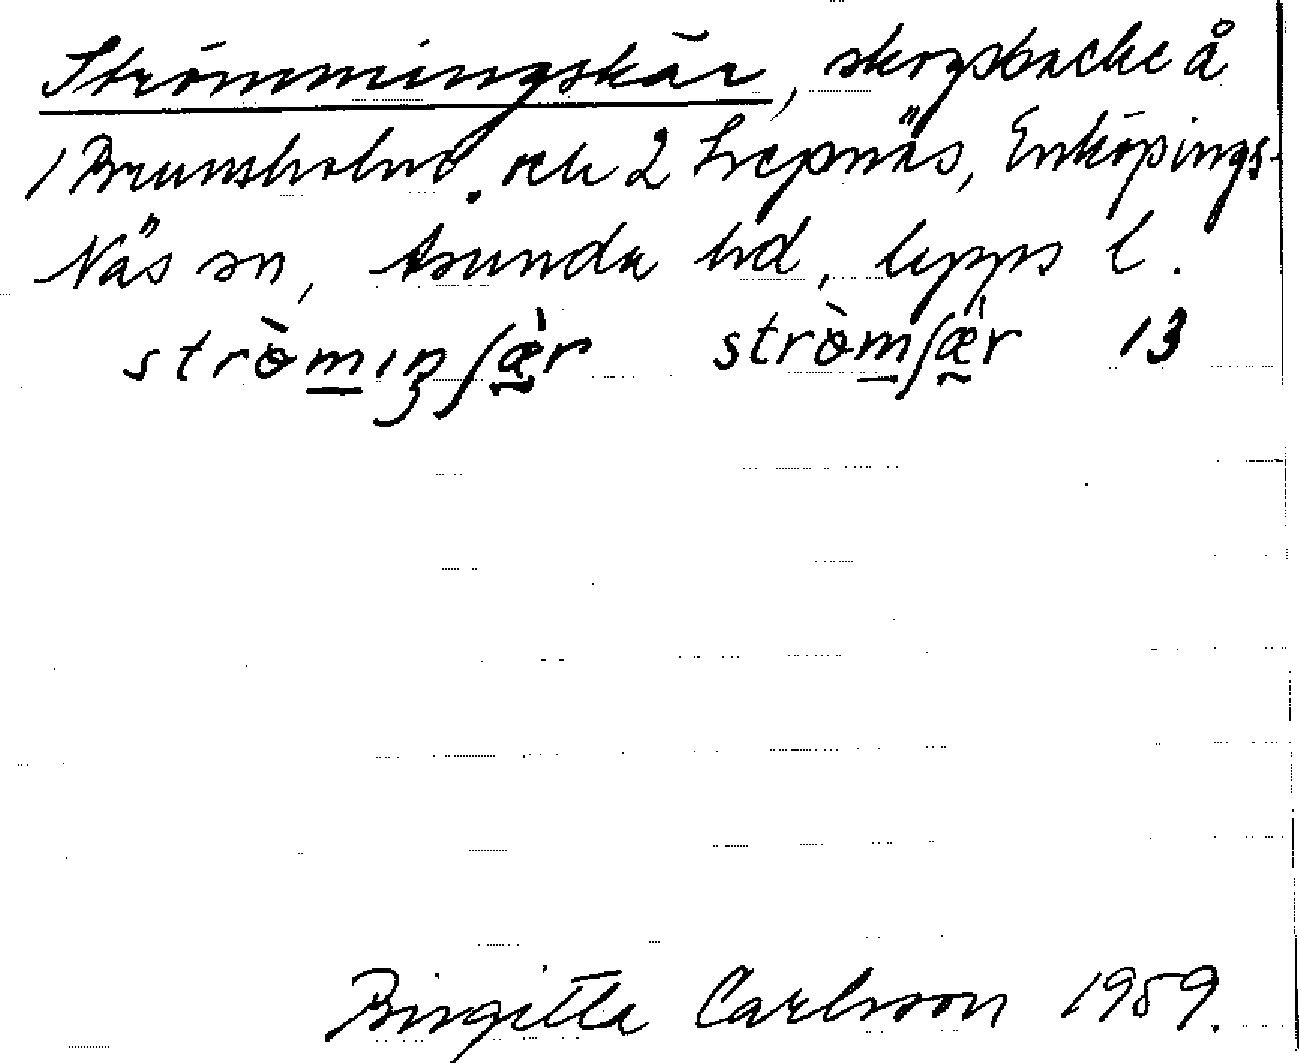 Strömmingskär, skogsbacke å
1 Brunsholm och 2 Trepnäs, Enköpings-
Näs sn, Åsunda hd, Upps l.
stròmıŋʃæ̀r  stròmʃæ̀r  13
Birgitta Carlsson 1959.